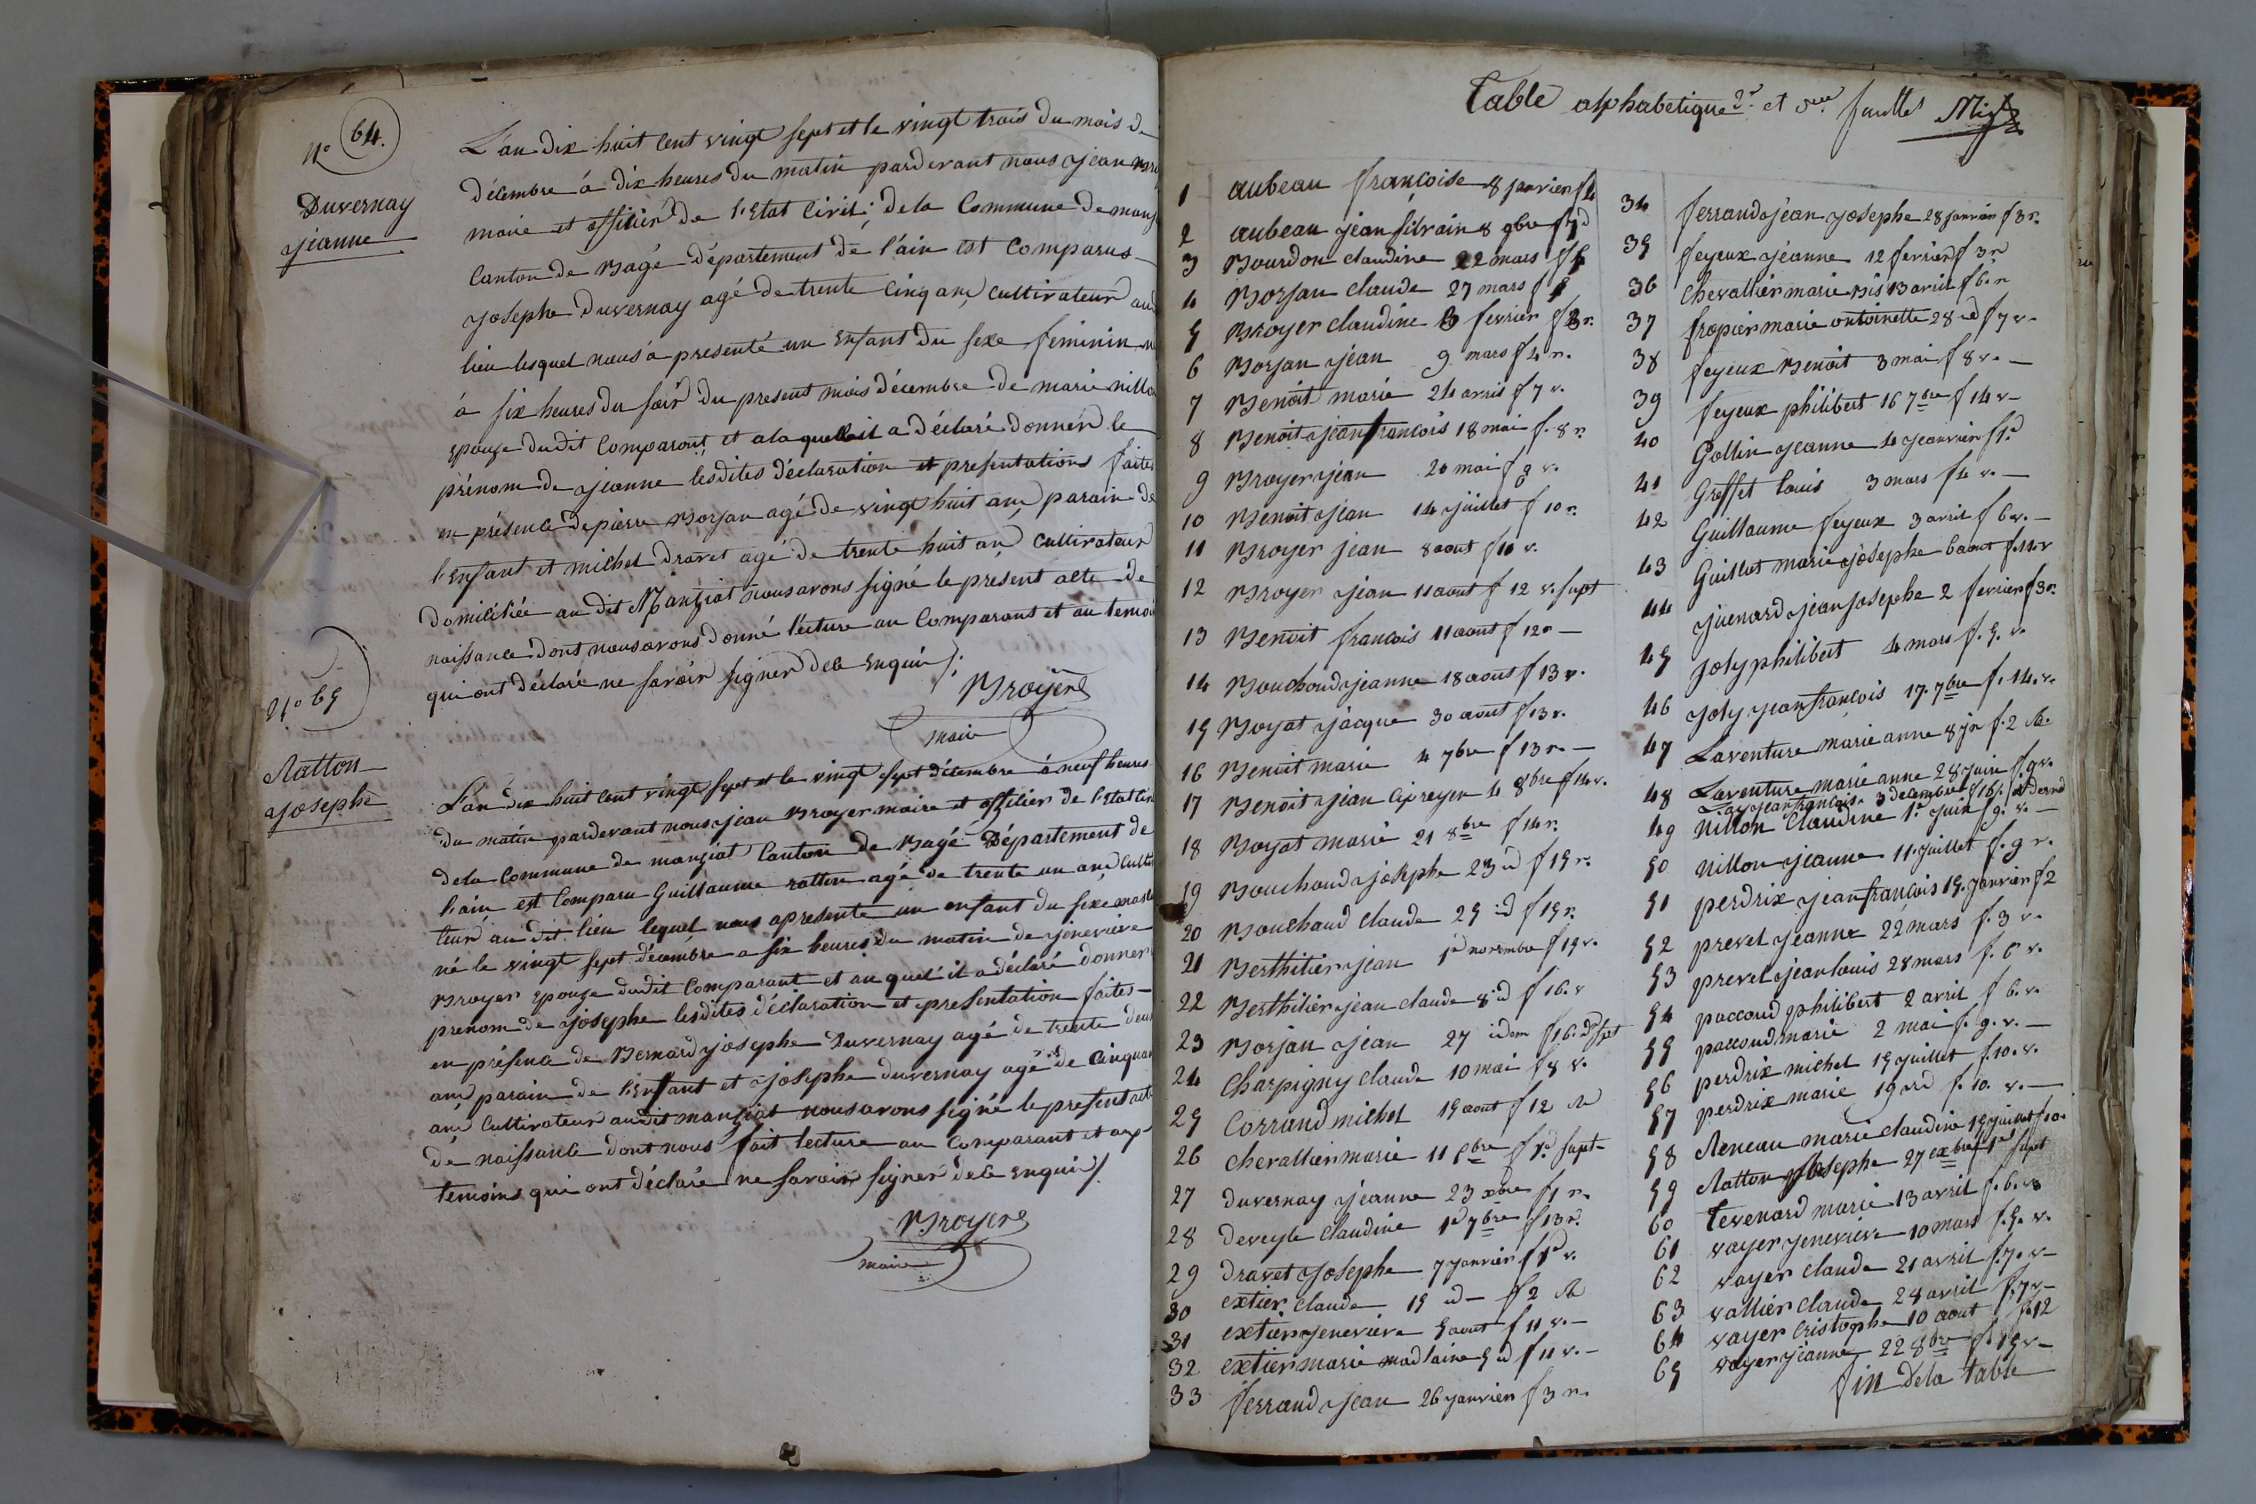 N° 64.
Duvernay
jeanne
L'an dix huit cent vingt sept et le vingt trois du mois de
décembre à dix heures du matin pardevant nous jean
maire et officier de l'Etat Civil de la Commune de
Canton de Bagé département de l'ain est Comparus
josephe Duvernay agé de trente cinq ans cultivateur au
lieu lesquel nous a presenté un enfant du sexe feminin
à six heures du soir du present mois décembre de marie
epouse dudit Comparant et a laquelle il a déclaré donner le
prénom de jeanne lesdites déclaration et presentations faites
en présence de pierre Borjan agé de vingt huit ans parain de
l'enfant et michel dravet agé de trente huit ans cultivateur
domiciliée au dit Manziat nous avons signé le présent acte de
naissance dont nous avons donné lecture au Comparans et au
qui ont déclaré ne savoir signer de ce enquis ./.
Broyer
maire
N° 65
Ratton
josephe
L'an dix huit cent vingt sept et le vingt sept décembre à neuf heures
du matin pardevant nous jean Broyer maire et officier de l'etat
de la Commune de manziat Canton de Bagé Département de
l'ain est Comparu Guillaume ratton agé de trente un ans
teur au dit lieu lequel nous a presenté un enfant du sexe
né le vingt sept décembre a six heures du matin de jenevieve
Broyer epouse dudit Comparant et au quel il a déclaré donner
prenom de josephe lesdites déclaration et presentation faites
en présence de Bernard josephe Duvernay agé de trente
ans parain de l'enfant et josephe duvernay agé de
ans cultivateur audit manziat nous avons signé le present
de naissance dont nous fait lecture au Comparant et au
temoins qui ont déclaré ne savoir signer de ce enquis ./.
Broyer
maire
Table alphabetique 2e et feuilles
1 aubeau françoise 8 janvier f 2
2 aubeau jean silvain 8 9bre f
3 Bourdon claudine 22 mars f 5
4 Borjan claude 27 mars f
5 Broyer claudine 3 fevrier f 3 r.
6 Borjan jean 9 mars f 4 r.
7 Benoit marie 24 avril f 7 v.
8 Benoit jean francois 18 mai f. 8 r.
9 Broyer jean 20 mai f 9 v.
10 Benoit jean 14 juillet f 10 r.
11 Broyer jean 8 aout f 11 v.
12 Broyer jean 11 aout f 12 v. supt
13 Benoit francois 11 aout f 12 r
14 Bouchoud jeanne 18 aout f 13 r.
15 Boyat jacque 30 aout f 13 r.
16 Benoit marie 4 7bre f 13 r.
17 Benoit jean Cipreyen 4 8bre f 14 v.
18 Boyat marie 21 8bre f 14 r.
19 Bouchoud josephe 23 id f 15 r.
20 Bouchoud claude 25 id f 15 r.
21 Berthilier jean 1er novembre f 15 v.
22 Berthilier jean claude 8 id f 16. v
23 Borjan jean 27 idem f 16.
24 Charpigny claude 10 mai f 8 v.
25 Corrand michel 15 aout f 12 R
26 chevallier marie 11 f 1er supt
27 duvernay jeanne 23 xbre f 1 r.
28 deveyle claudine 1er 7bre f 13 r.
29 dravet josephe 7 janvier f 1er v.
30 extier claude 15 id f 2 R
31 extier jenevieve 5 aout f 11 v.
32 extier marie madlaine 5 id f 11 v.
33 ferrand jean 26 janvier f 3 r.
34 ferrand jean josephe 28 janvier f 3 r.
35 feyeux jeanne 12 fevrier f 3 r
36 chevallier marie 13 avril f 6. r
37 fropier marie antoinette 28 id f 7 v.
38 feyeux Benoit 3 mai f 8 v.
39 feyeux philibert 16 7bre f 14 v
40 Gollin jeanne 4 jeanvier f 1er
41 Greffet louis 3 mars f 4 v.
42 Guillaume feyeux 3 avril f 6 v.
43 Guillot marie josephe 6 aout f. 11 v
44 juenard jean josephe 2 fevrier f 3 r.
45 joly philibert 4 mars f. 5. v.
46 joly jean francois 17. 7bre f. 14. v.
47 Laventure marie anne 8 jr f. 2 R.
48 Laventure marie anne 28 juin f. 9 v.
Lay jean francois 3 decembre f 16.
49 Nillon Claudine 1er juin f 9. v.
50 Nillon jeanne 11. juillet f. 9 v.
51 perdrix jean francois 15. janvier f 2
52 prevel jeanne 22 mars f. 3 v.
53 prevel jean louis 28 mars f. 6 v.
54 paccoud philibert 2 avril f 6. v.
55 paccoud marie 2 mai f. 9. v.
56 perdrix michel 15 juillet f. 10. v.
57 perdrix marie 19 id f. 10. v.
58 Reneau marie claudine 15 juillet f 10.
59 Ratton josephe 27 xbre f 1er supt
60 Tevenard marie 13 avril f. 6. v
61 vayer jenevieve 10 mars f. 5. v.
62 vayer claude 21 avril f. 7. v
63 vallier claude 24 avril f. 7 v
64 vayer Cristophe 10 aout f. 12
65 vayer jeanne 22 8bre f. 15 v
fin de la table